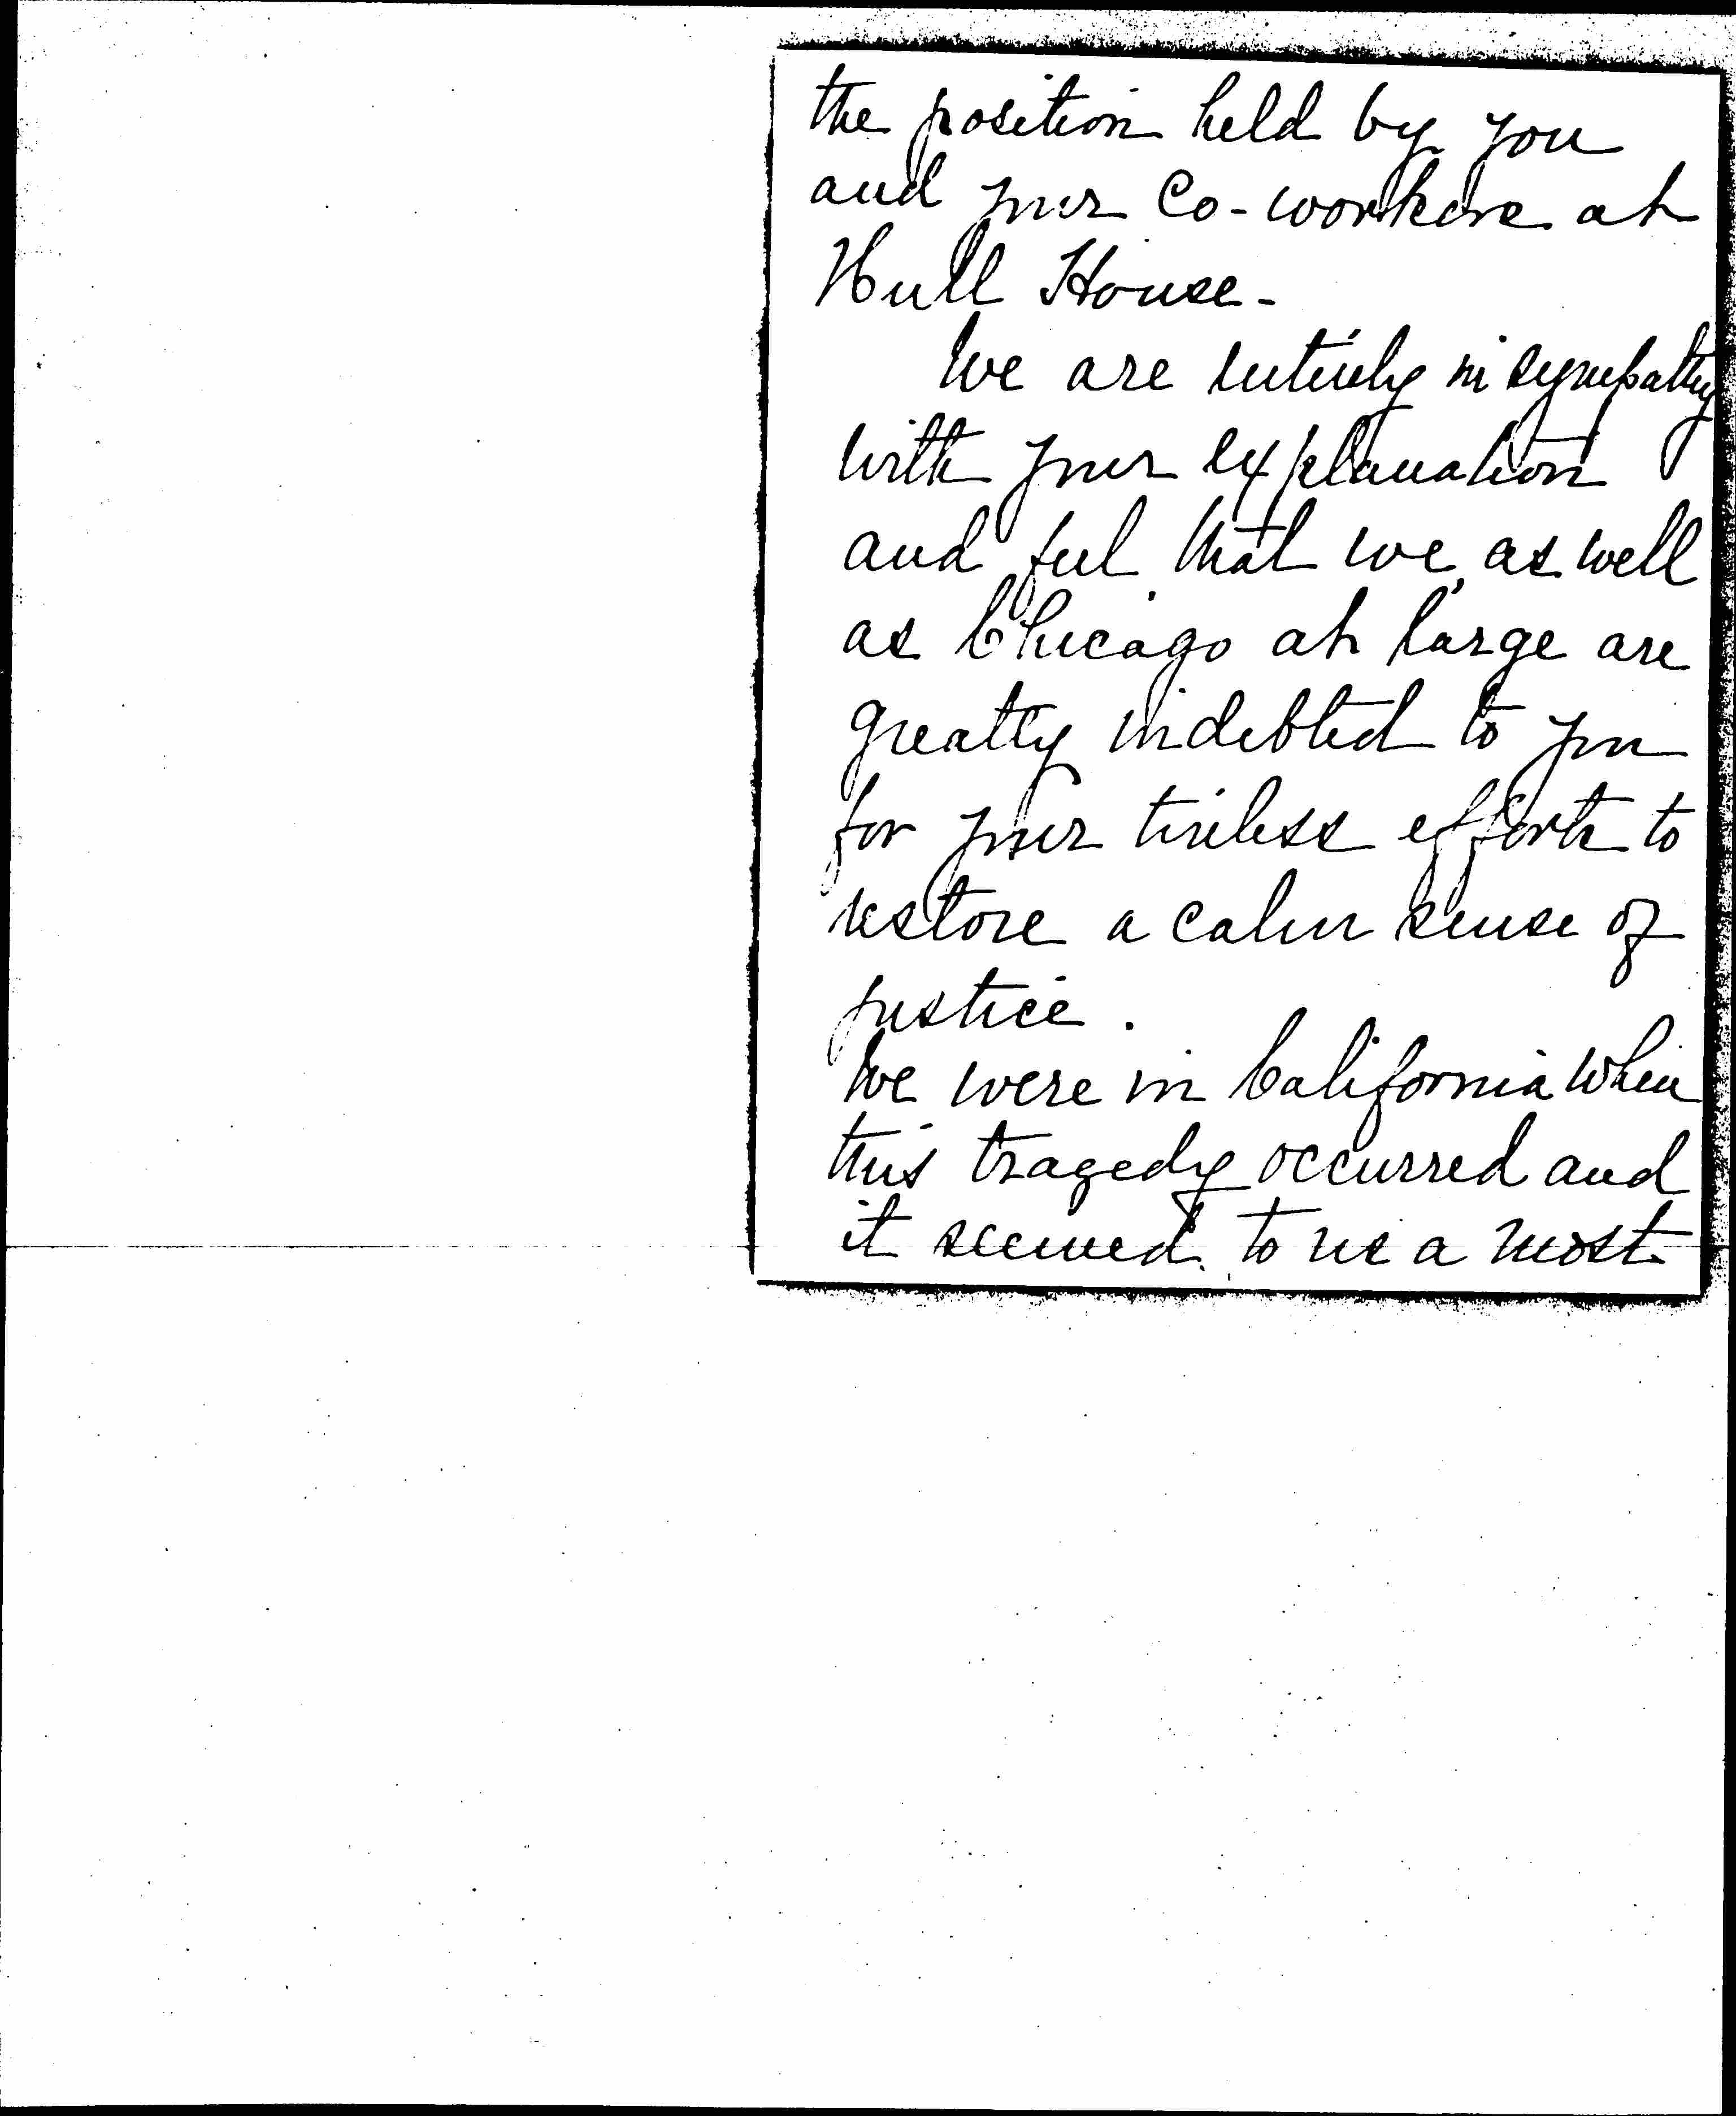 the position held by you
and your Co-workers at
Hull House-
We are entirely in sympathy
with your explanation
and feel that we, as well
as Chicago at large are
greatly indebted to you
for your tireless efforts to
restore a calm sense of
justice.
We were in California when
this tragedy occurred and
it seemed to us a most